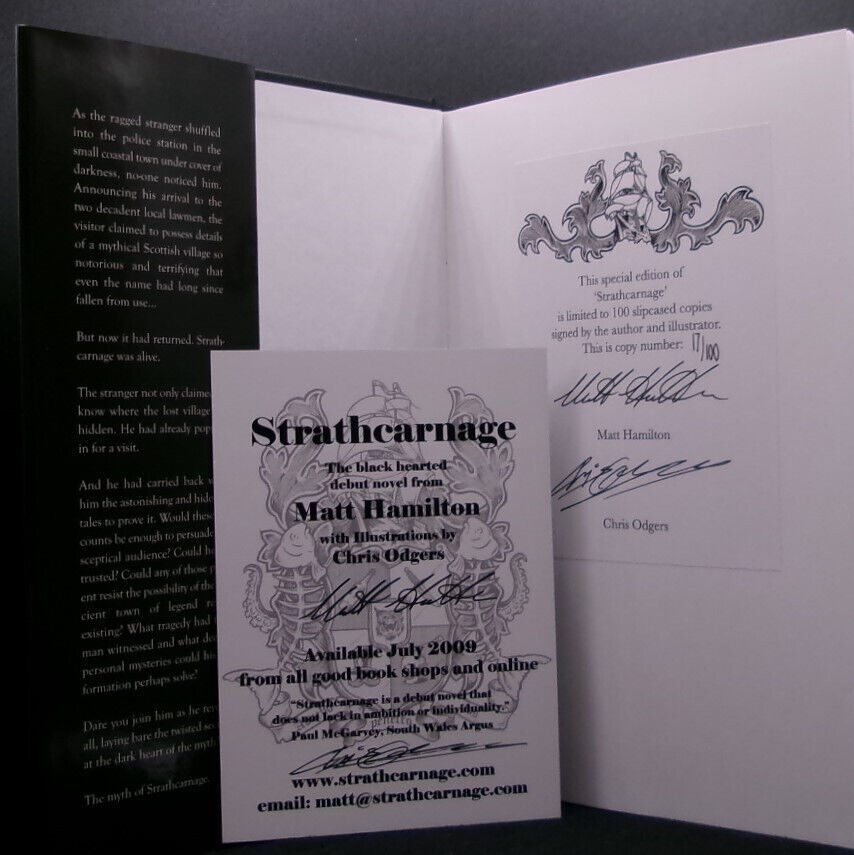 As the ragged stranger shuffled
into the police station in the
small coastal town under cover of
darkness, no-one noticed him.
Announcing his arrival to the
two decadent local lawmen, the
visitor claimed to possess details
of a mythical Scottish village so
notorious and terrifying that
even the name had long since
fallen from use...
But now it had returned. Strath-
carnage was alive.
The stranger not only claime
know where the lost village
hidden. He had already pop
in for a visit.
And he had carried back w
him the astonishing and hid
tales to prove it. Would thes
counts be enough to persuad
sceptical audience? Could h
trusted? Could any of those p
ent resist the possibility of the
cient town of legend r
existing? What tragedy had
man witnessed and what de
personal mysteries could his
formation perhaps solve?
Dare you join him as he rev
all, laying bare the twisted se
at the dark heart of the myth
The myth of Strathcarnage.
Strathcarnage
The black hearted
debut novel from
Matt Hamilton
with Illustrations by
Chris Odgers
Available July 2009
from all good book shops and online
"Strathcarnage is a debut novel that
does not lack in ambition or individuality."
Paul McGarvey, South Wales Argus
www.strathcarnage.com
email: matt@strathcarnage.com
This special edition of
'Strathcarnage'
is limited to 100 slipcased copies
signed by the author and illustrator.
This is copy number: 17/100
Matt Hamilton
Chris Odgers